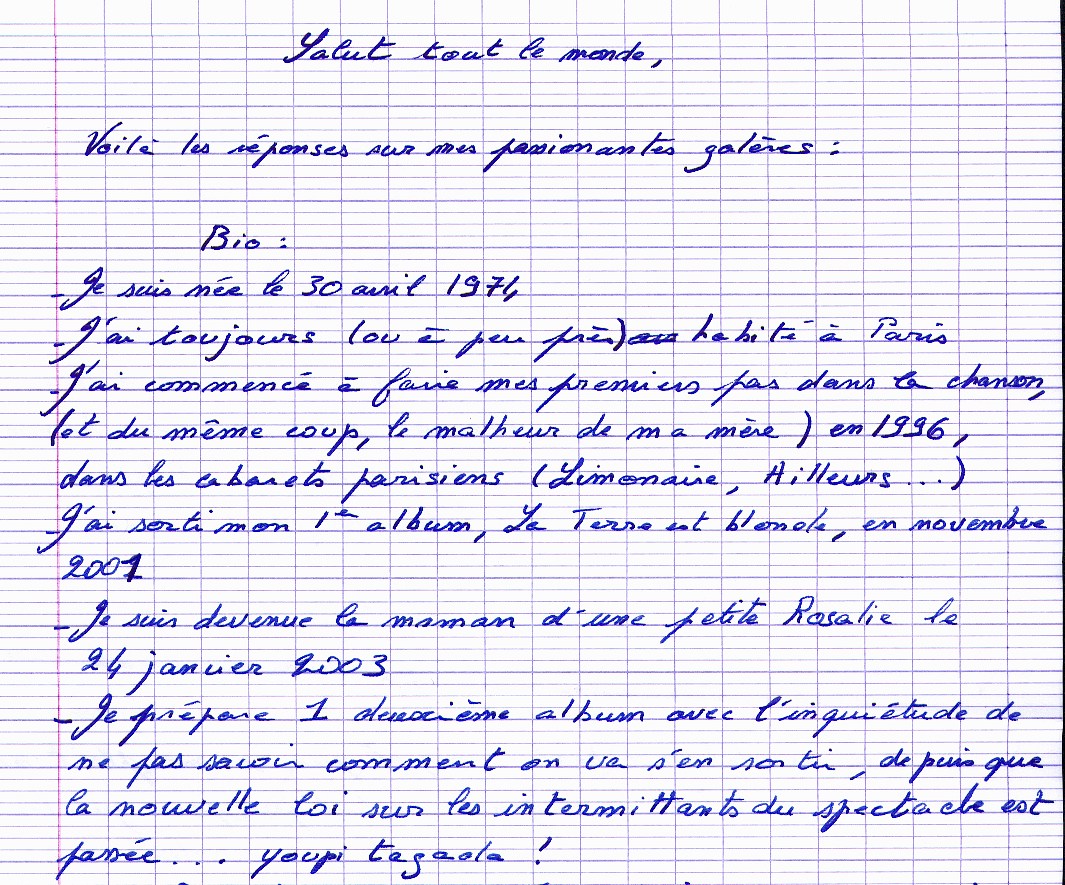 Salut tout le monde,
Voilà les réponses sur mes passionantes galères :
Bio :
- Je suis née le 30 avril 1974
- J'ai toujours (ou à peu près) habité à Paris
- J'ai commencé à faire mes premiers pas dans la chanson,
(et du même coup, le malheur de ma mère) en 1996,
dans les cabarets parisiens (Limonaire, Ailleurs...)
- J'ai sorti mon 1er album, La Terre est blonde, en novembre
2001
- Je suis devenue la maman d'une petite Rosalie le
24 janvier 2003
- Je prépare 1 deuxième album avec l'inquiétude de
ne pas savoir comment on va s'en sortir, depuis que
la nouvelle loi sur les intermittants du spectacle est
passée... youpi tagada !